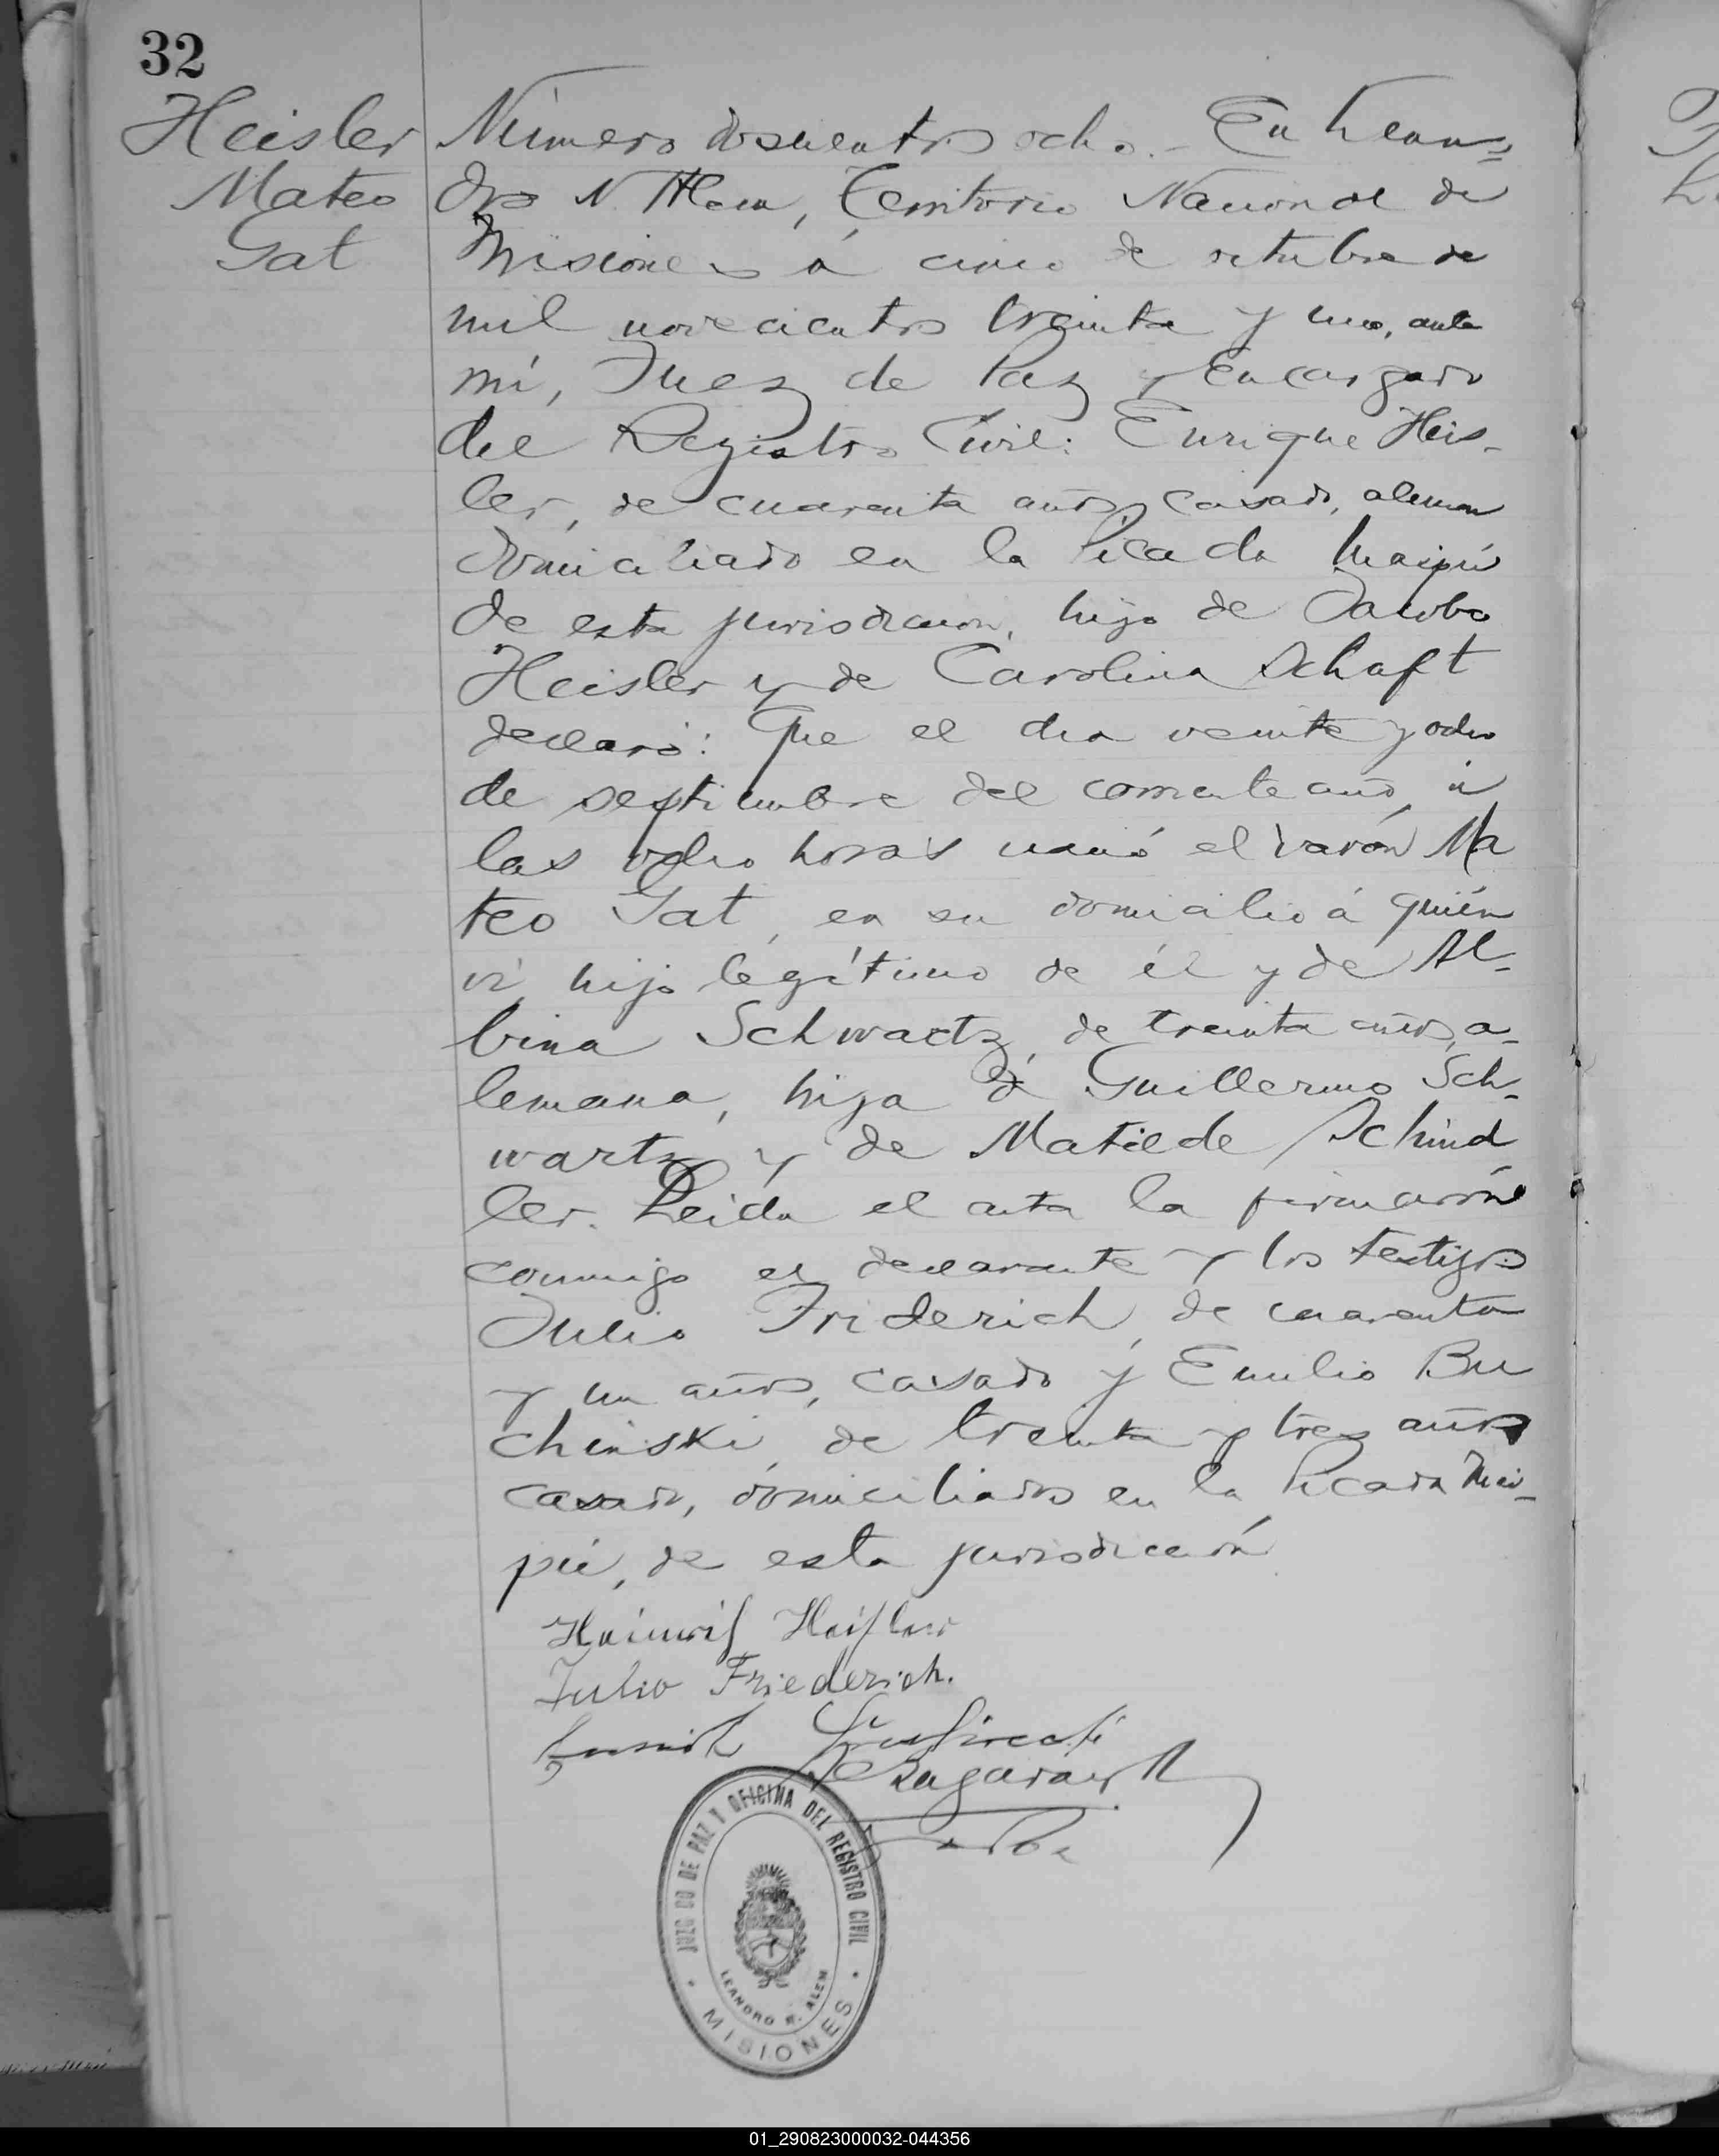 32
Heisler
Mateo
Gat
Número doscientos ocho.- En Lean=
dro N. Alem, Territorio Nacional de
Misiones á cinco de octubre de
mil novecientos treinta y uno, ante
mí, Juez de Paz y Encargado
del Registro Civil: Enrique Heis-
ler, de cuarenta años, casado, aleman
domiciliado en la Picada Maipú
de esta jurisdiccion, hijo de Jacobo
Heisler y de Carolina Schaft
declaró: Que el dia veinte y ocho
de septiembre del corriente año, á
las ocho horas nació el varón Ma
teo Gat, en su domicilio á quién
ví, hijo legítimo de él y de Al-
bina Schwartz, de treinta años, a-
lemana, hija de Guillermo Sch-
wartz y de Matilde Schind
ler. Leida el acta la firmaron
conmigo el declarante y los testigos
Julio Friderich, de cuarenta
y un años, casado y Emilio Bu
chinski, de treinta y tres años
casado, domiciliados en la Picada Mai-
pú, de esta jurisdicción
Heinrich Heisler
Julio Friederich.
JUZGADO DE PAZ Y OFICINA DEL REGISTRO CIVIL
LEANDRO N. ALEM
MISIONES
01_290823000032-044356